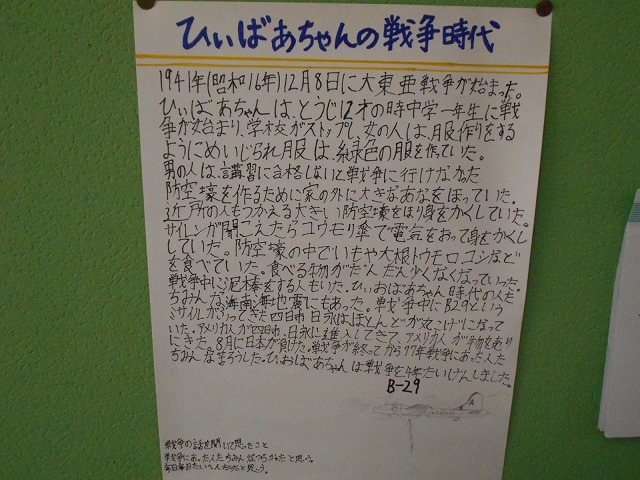 ひぃばあちゃんの戦争時代
1941年(昭和16年)12月8日に大東亜戦争が始まった。
ひぃばあちゃんは、とうじ12才の時中学一年生に戦
争が始まり、学校がストップし、女の人は、服作りをする
ようにめいじられ服は、緑色の服を作っていた。
男の人は、講習に合格しないと戦争に行けなかった
防空壕を作るために家の外に大きなあなをほっていた。
近所の人もつかえる大きい防空壕をほり身をかくしていた。
サイレンが聞こえたらコウモリ傘で電気をおって身をかくし
していた。防空壕の中でいもや大根トウモロコシなど
を食べていた。食べる物がだんだん少くなくなっていった。
戦争中に泥棒をする人もいた。ひぃおばあちゃん時代の人た
ちみんな東海南海地震にもあった。戦争中にB29という
ミサイルがふってきた四日市日永はほとんどが丸こげになって
いた。アメリカ人が四日市、日永に進入してきて、アメリカ人が物を
にきた。8月に日本が負けた。戦争が終ってから77年戦争にあった人た
ちみんな苦ろうした。ひぃおばあちゃんは戦争を4年たいけんしました。
B-29
戦争の話を聞いて思ったこと
戦争にあった人たちみんなつらかったと思う。
毎日毎日たいへんだったと思う。